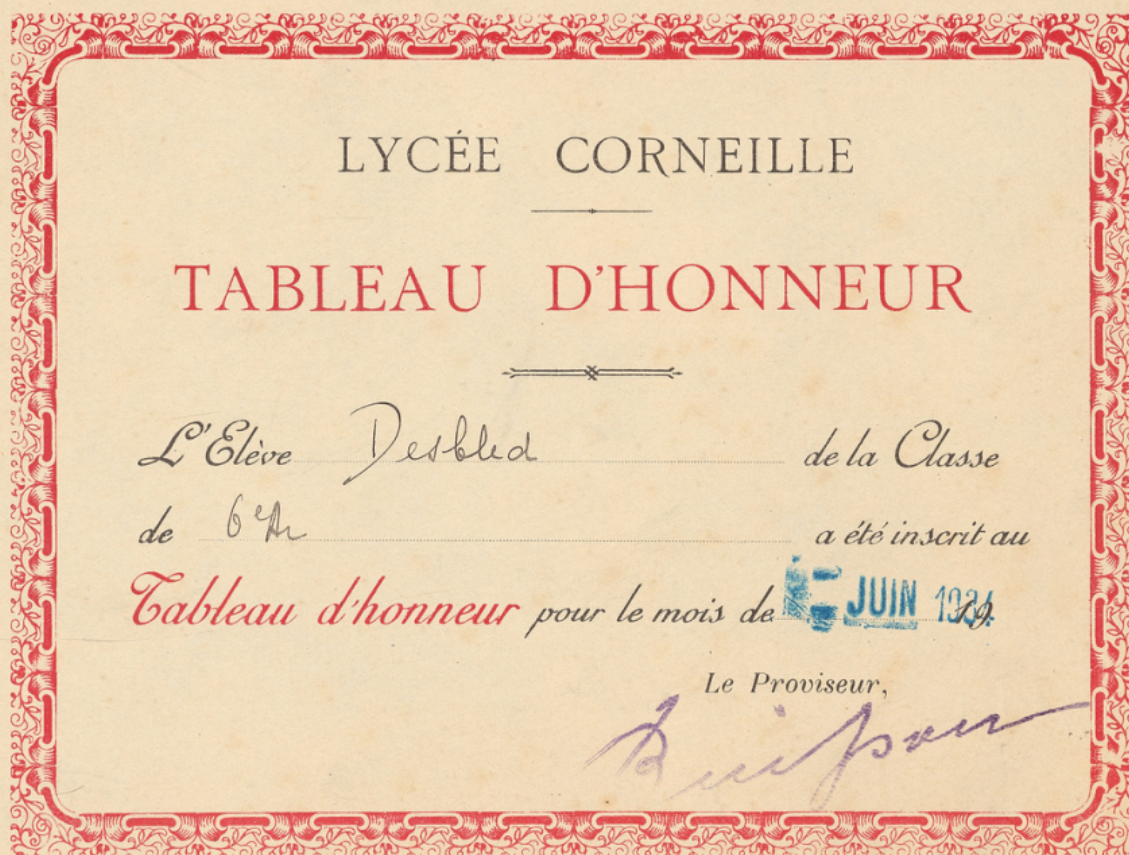 LYCÉE CORNEILLE
TABLEAU D'HONNEUR
L'Elève Desbled de la Classe
de 6e a été inscrit au
Tableau d'honneur pour le mois de JUIN 1934
Le Proviseur,